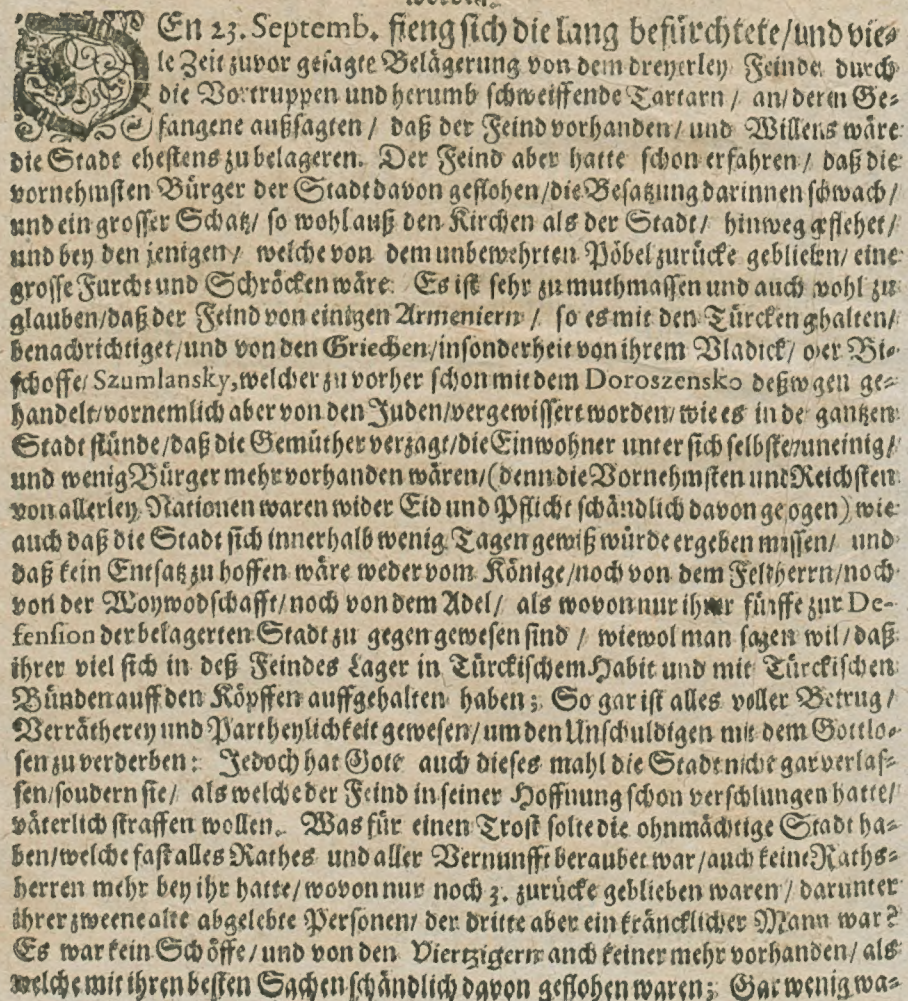 DEn 23. Septemb. fieng sich die lang befürchtete/und vie-
le Zeit zuvor gesagte Belägerung von dem dreyerley Feinde durch
die Vortruppen und herumb schweiffende Tartarn / an/deren Ge-
fangene außsagten / daß der Feind vorhanden/ und Willens wäre
die Stadt ehestens zu belageren. Der Feind aber hatte schon erfahren / daß die
vornehmsten Bürger der Stadt davon geflohen/die Besatzung darinnen schwach/
und ein grosser Schatz/ so wohl auß den Kirchen als der Stadt/ hinweg geflehet/
und bey den jenigen/ welche von dem unbewehrten Pöbel zurücke geblieben/ eine
grosse Furcht und Schröcken wäre. Es ist sehr zu muthmassen und auch wohl zu
glauben/daß der Feind von einigen Armeniern / so es mit den Türcken ghalten/
benachrichtiget/und von den Griechen/insonderheit von ihrem Vladick/ oder Bi-
schoffe/ Szumlansky, welcher zu vorher schon mit dem Doroszensko deßwgen ge-
handelt/vornemlich aber von den Juden/vergewissert worden/ wie es in de gantzen
Stadt stünde/daß die Gemüther verzagt/die Einwohner unter sich selbsten uneinig/
und wenig Bürger mehr vorhanden wären/(denn die Vornehmsten und Reichsten
von allerley Nationen waren wider Eid und Pflicht schändlich davon gezogen) wie
auch daß die Stadt sich innerhalb wenig Tagen gewiß würde ergeben müssen/ und
daß kein Entsatz zu hoffen wäre weder vom Könige/noch von dem Feldherrn/noch
von der Woywodschafft/noch von dem Adel/ als wovon nur ihrer fünffe zur De-
fension der belagerten Stadt zu gegen gewesen sind / wiewol man sagen wil/daß
ihrer viel sich in deß Feindes Lager in Türckischem Habit und mit Türckischen
Bünden auff den Köpffen auffgehalten haben; So gar ist alles voller Betrug/
Verrätherey und Partheylichkeit gewesen/um den Unschuldigen mit dem Gottlo-
sen zu verderben: Jedoch hat Gott auch dieses mahl die Stadt nicht gar verlas-
sen/soudern sie/ als welche der Feind in seiner Hoffnung schon verschlungen hatte/
väterlich straffen wollen. Was für einen Trost solte die ohnmächtige Stadt ha-
ben/welche fast alles Rathes und aller Vernunfft beraubet war/auch keine Raths-
herren mehr bey ihr hatte/wovon nur noch 3. zurücke geblieben waren/ darunter
ihrer zweene alte abgelebte Personen/ der dritte aber ein kräncklicher Mann war?
Es war kein Schöffe/und von den Viertzigern anch keiner mehr vorhanden/ als
welche mit ihren besten Sachen schändlich davon geflohen waren; Gar wenig wa-